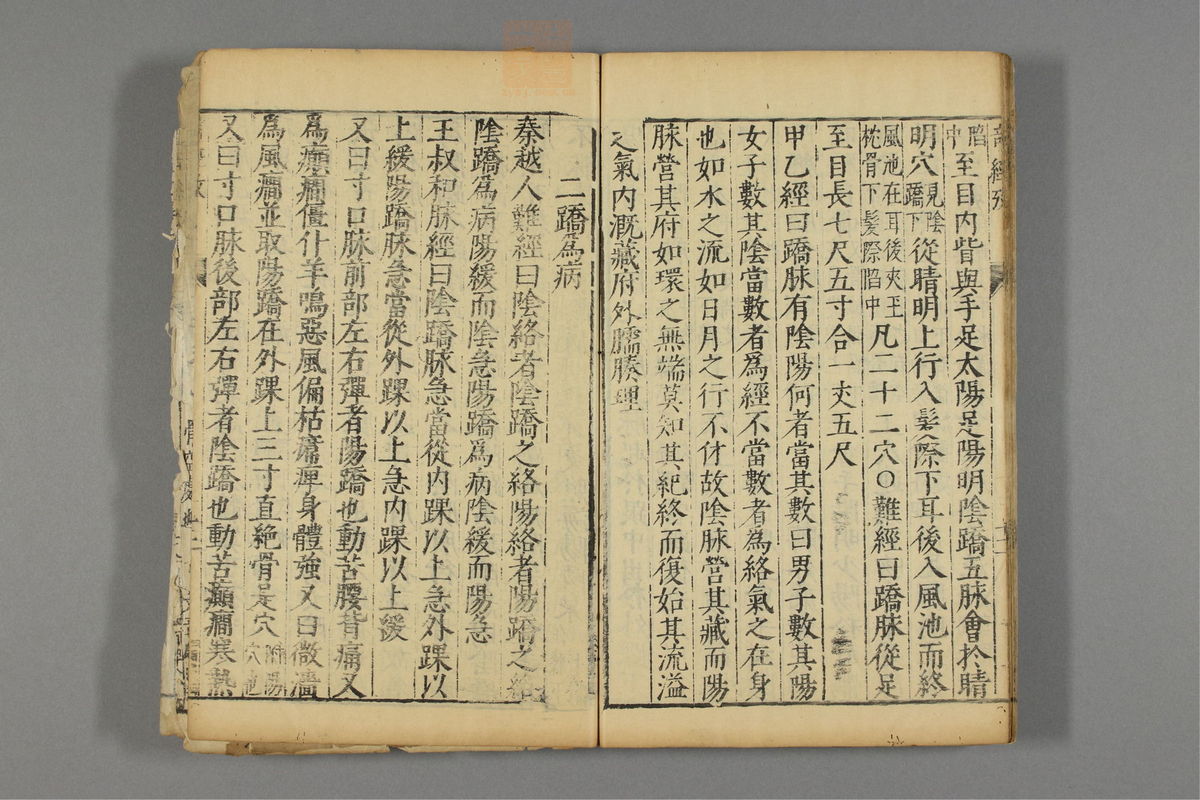 陷中至目内眥與手足太陽足陽明陰蹻五脉會於睛
明穴見陰蹻下從睛明上行入髮際下耳後入風池而終
風池在耳後夾玉枕骨下髮際陷中凡二十二穴〇難經曰蹻脉從足
至目長七尺五寸合一丈五尺
甲乙經曰蹻脉有陰陽何者當其數曰男子數其陽
女子數其陰當數者為經不當數者為絡氣之在身
也如水之流如日月之行不休故陰脉營其藏而陽
脉營其府如環之無端莫知其紀終而復始其流溢
之氣内溉藏府外濡腠理
二蹻為病
秦越人難經曰陰絡者陰蹻之絡陽絡者陽蹻之絡
陰蹻為病陽緩而陰急陽蹻為病陰緩而陽急
王叔和脉經曰陰蹻脉急當從内踝以上急外踝以
上緩陽蹻脉急當從外踝以上急内踝以上緩
又曰寸口脉前部左右彈者陽蹻也動苦腰背痛又
為癲癇僵仆羊鳴惡風偏枯𤸷痺身體強又曰微濇
為風癇並取陽蹻在外踝上三寸直絶骨是穴
又曰寸口脉後部左右彈者陰蹻也動苦癲癇寒熱